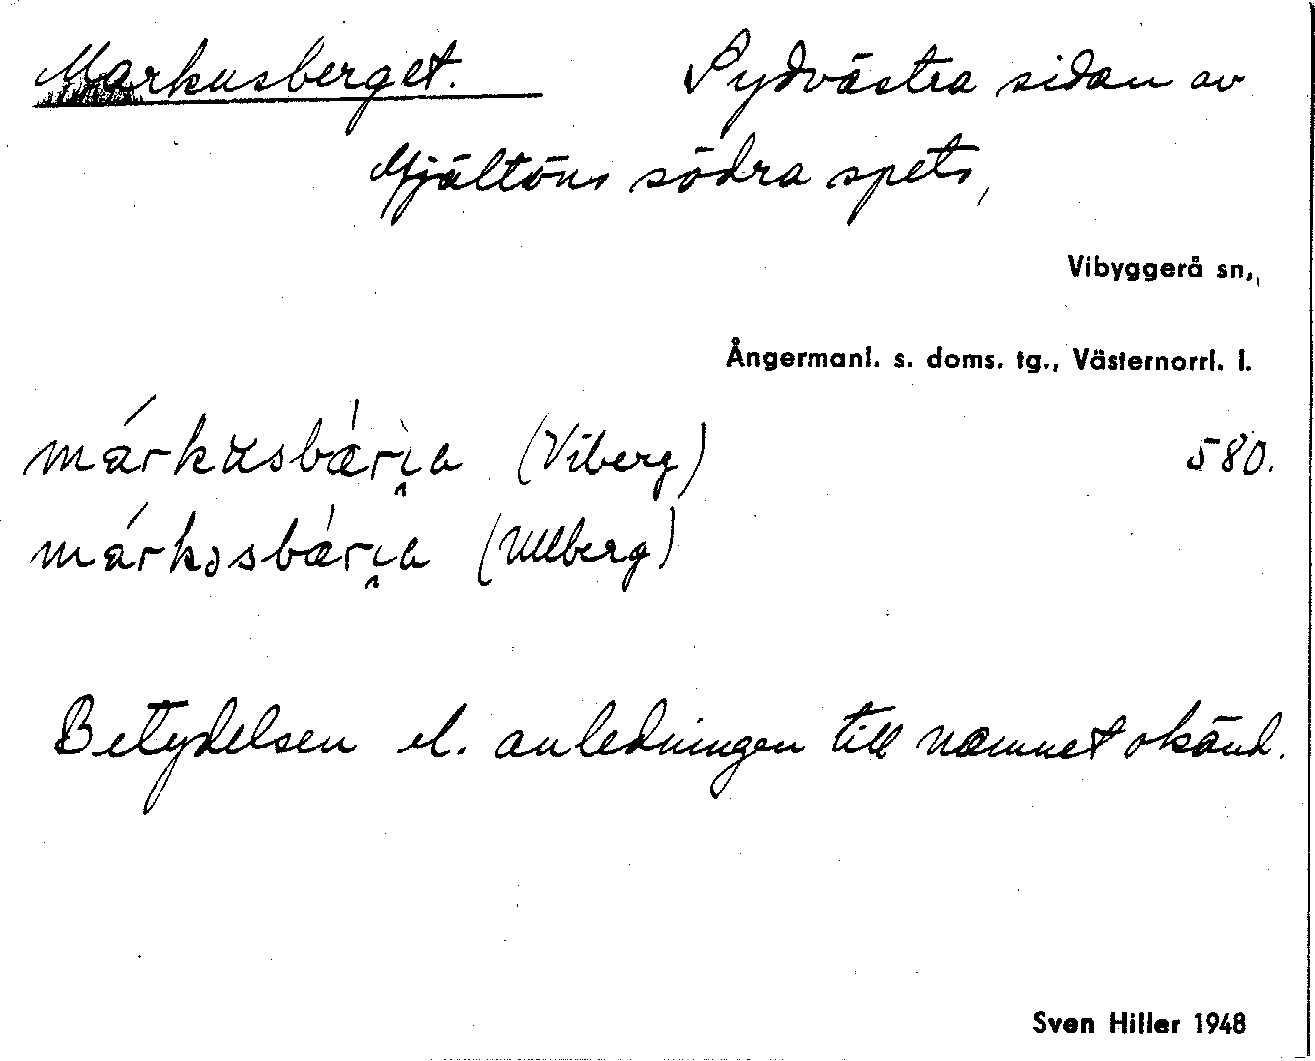 Markusberget. Sydvästra sidan av
Mjältöns södra spets,
Vibyggerå sn.,
Ångermanl. s. doms. tg., Västernorrl. l.
(Viberg) 580.
(Ullberg)
Betydelsen el. anledningen till namnet okänd.
Sven Hiller 1948